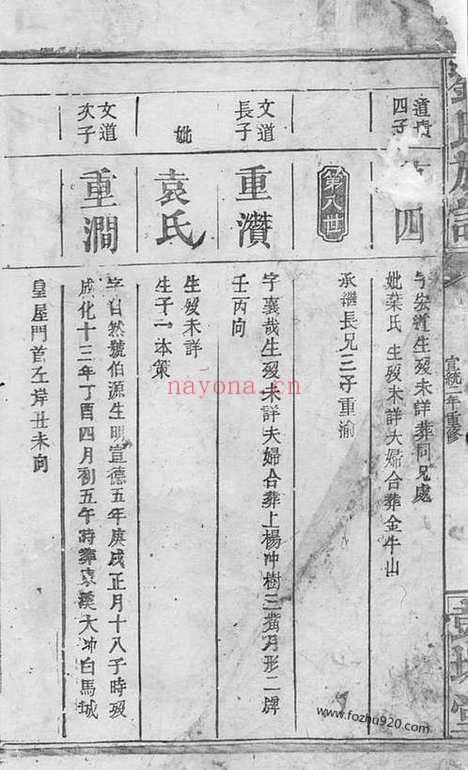 劉氏族譜
宣統二年重修
道
四子
四
字安 生歿未詳葬同兄處
妣葉氏 生歿未詳夫婦合葬金牛山
承繼長兄三子重渝
第八世
文道
長子
重瓚
字襄哉生歿未詳夫婦合葬上楊冲樹三嘴月形二牌
壬丙向
妣
袁氏
生歿未詳
生子一本策
文道
次子
重澗
字自然號伯源生明宣德五年庚戌正月十八子時歿
成化十三年丁酉四月初五午時葬袁漢大冲白馬城
皇屋門首左岸丑未向
nayona.cn
www.fozhu920.com